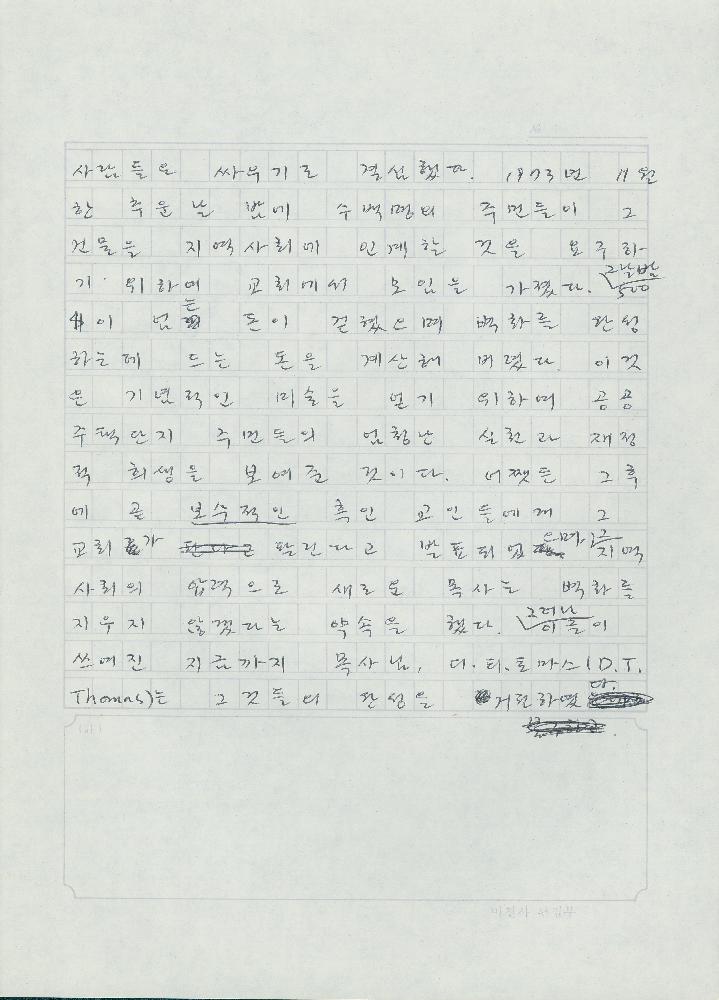 사람들은 싸우기로 결심했다. 1973년 11월
한 추운날 밤에 수백명의 주민들이 그
건물을 지역사회에 인계할 것을 요구하
기 위하여 교회에서 모임을 가졌다. 그날밤 500
$이 넘는 돈이 걷혔으며 벽화를 완성
하는데 드는 돈을 계산해 버렸다. 이것
은 기념적인 미술을 얻기 위하여 공공
주택단지 주민들의 엄청난 실천과 재정
적 희생을 보여준 것이다. 어쨌든 그후
에 곧 보수적인 흑인 교인들에게 그
교회가 팔린다고 발표되었으며, 지역
사회의 압력으로 새로운 목사는 벽화를
지우지 않겠다는 약속을 했다. 그러나 이 글이
쓰여진 지금까지 목사님, 디.티.토마스(D.T.
Thomas)는 그것들의 완성을 거절하였다.